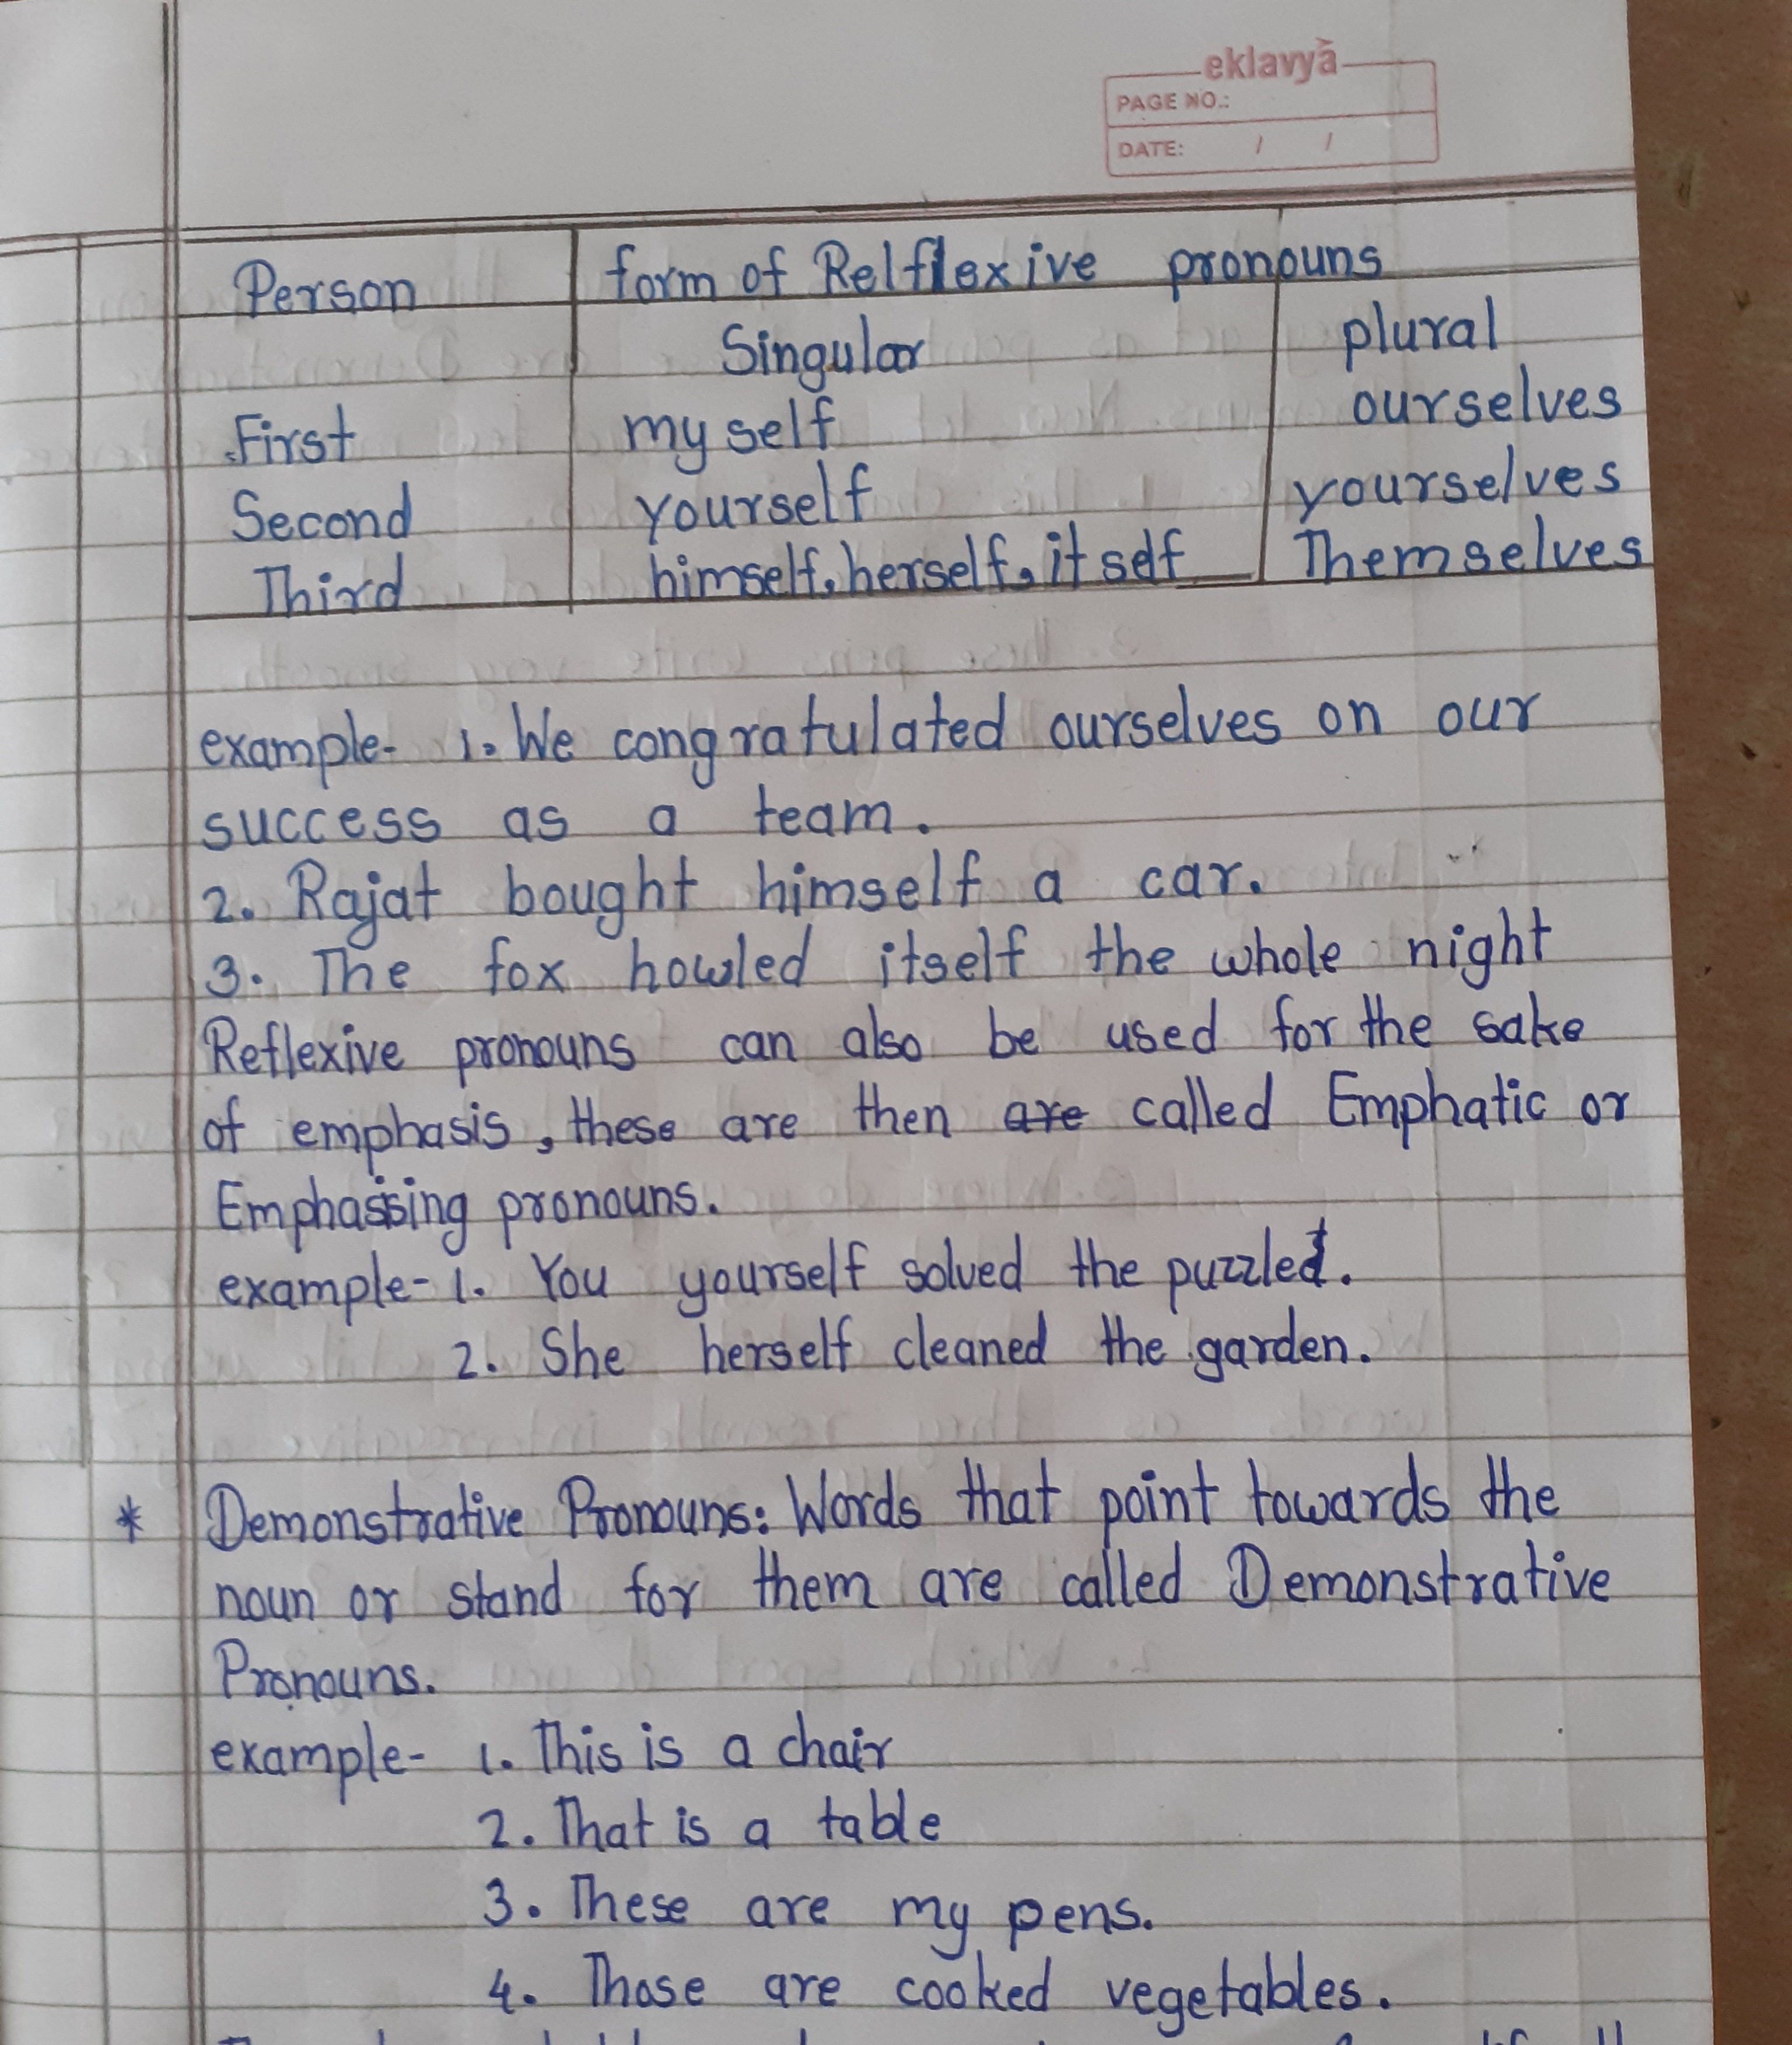 eklavyà
PAGE NO.:
DATE: / /
Person form of Relflexive pronouns
Singular plural
First myself ourselves
Second yourself yourselves
Third himself, herself, itself Themselves
example- 1. We congratulated ourselves on our
success as a team.
2. Rajat bought himself a car.
3. The fox howled itself the whole night
Reflexive pronouns can also be used for the sake
of emphasis, these are then are called Emphatic or
Emphassing pronouns.
example- 1. You yourself solved the puzzled.
2. She herself cleaned the garden.
* Demonstrative Pronouns: Words that point towards the
noun or stand for them are called Demonstrative
Pronouns.
example- 1. This is a chair
2. That is a table
3. These are my pens.
4. Those are cooked vegetables.